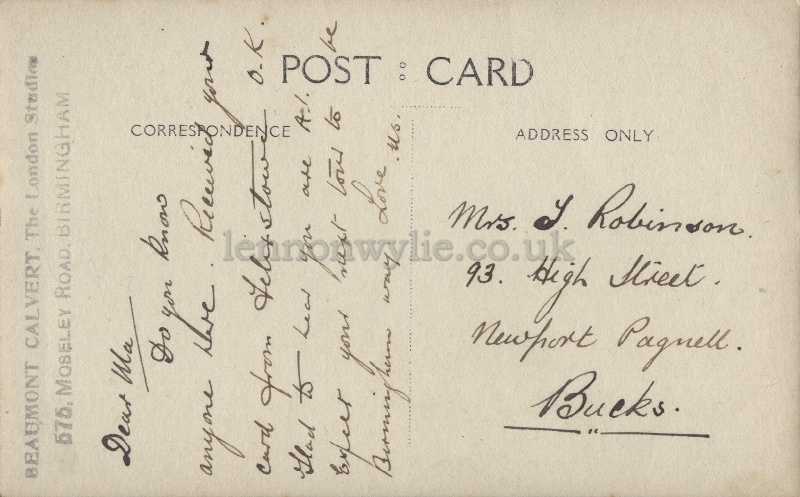 POST CARD
CORRESPONDENCE
ADDRESS ONLY
BEAUMONT CALVERT, The London Studios
575, MOSELEY ROAD, BIRMINGHAM
Dear Ma
Do you know
anyone here. Received your
card from Felixstowe O.K.
Glad to hear you are A.1.
Expect your next tour to be
Birmingham way Love. Us.
Mrs. J. Robinson.
93. High Street.
Newport Pagnell.
Bucks.
lennonwylie.co.uk